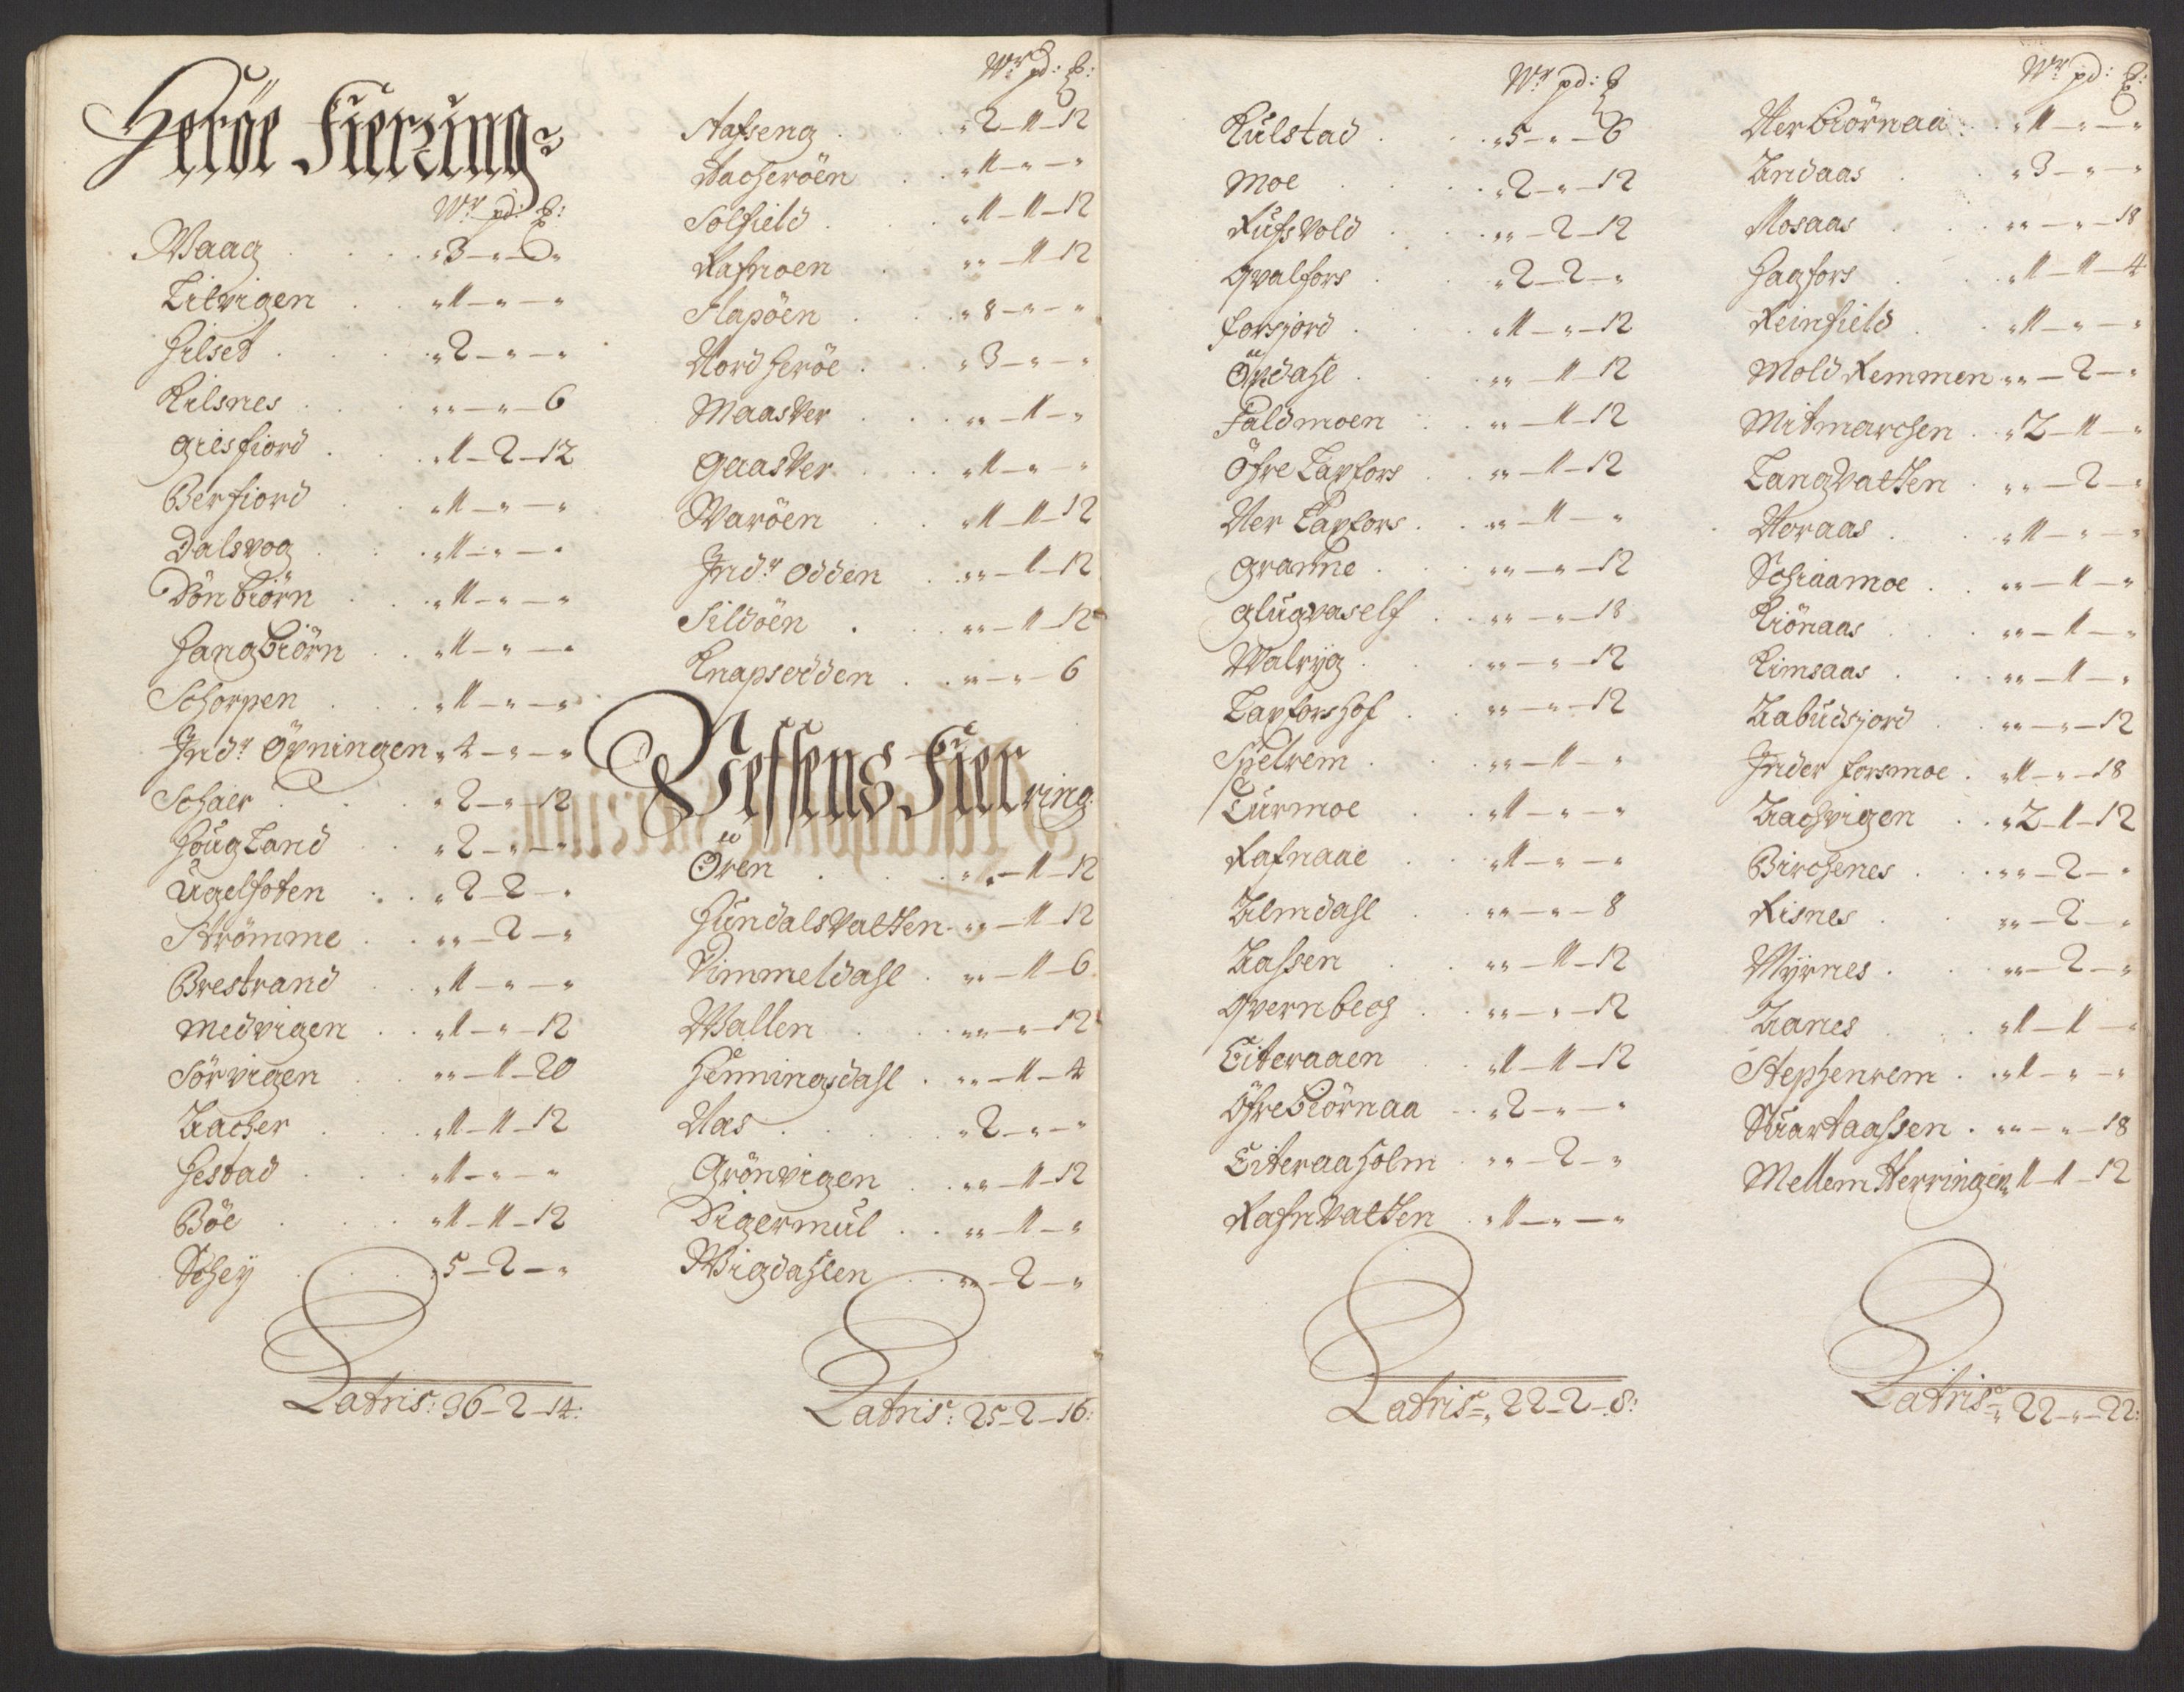 Heröe Fierring
Wr pd: ℔:
Waag „3–„–„
Litvigen „1–„–„
Hilset „2–„–„
Kilsnes „„–„–6
Giesfiord „1–2–12
Berfiord „1–„–„
Dalsvog „1–„–„
Dönbiörn „1–„–„
Hangbiörn „1–„–„
Schorpen „1–„–„
Indr Öyningen „4–„–„
Schaer „2–„–12
Hougland „2–„–„
Ugelfoten „2–2–„
Strömme „„–2–„
Brestrand „1–„–„
Medvigen „1–„–12
Sörvigen „„–1–20
Aacher „1–1–12
Hestad „1–„–„
Böe „1–1–12
Schey „5–2–„
Latris: 36–2–14:
Wr pd: ℔:
Stafseng „2–1–12
Aacheröen „1–„–„
Solfield „1–1–12
Rafnoen „„–1–12
Slapöen „8–„–„
Nord Heröe „3–„–„
Maasver „„–1–„
Gaasver „1–„–„
Waröen „1–1–12
Indr Odden „„–1–12
Sildöen „„–1–12
Knapsodden „„–„–6
Vefsens Fierring
Ören „„–1–12
Hundalsvatten „„–1–12
Vimmeldahl „„–1–6
Wallen „„–„–12
Henningsdahl „„–1–4
Næs „2–„–„
Grönvigen „„–1–12
Digermul „„–1–„
Wigdahlen „„–2–„
Latris: 25–2–16:
Wr pd: ℔
Kulstad „5–„–6
Moe „2–„–12
Rufsvold „„–2–12
Qvalfors „2–2–„
Forsjord „1–„–12
Öydahl „„–1–12
Faldmoen „„–1–12
Öfre Laxfors „„–1–12
Ner Laxfors „„–1–„
Granne „„–„–12
Glugvaself „„–„–18
Walryg „„–„–12
Laxforshof „„–„–12
Spelrem „„–1–„
Turmoe „1–„–„
Rafnaae „1–„–„
Almdahl „„–„–8
Aassen „„–1–12
Qvernbech „„–„–12
Eiteraaen „1–1–12
Öfrebiörnaa „2–„–„
Eiteraaholm „„–2–„
Rafnvatten „1–„–„
Latris „22–2–8:
Wr pd: ℔:
Nerbiörnaa „1–„–„
Andaas „3–„–„
Mosaas „„–„–18
Hagfors „1–1–4
Reinfield „1–„–„
Mold Remmen „„–2–„
Mitmarchen „2–1–„
Langvatten „„–2–„
Noraas „1–„–„
Schiaamoe „„–1–„
Kiönaas „„–1–„
Kimsaas „„–1–„
Aabudsjord „„–„–12
Inder Forsmoe „1–„–18
Aachvigen „2–1–12
Birchenes „„–2–„
Risnes „„–2–„
Myrnes „„–2–„
Aanes „1–1–„
Stephenrem „1–„–„
Svartaassen „„–„–18
Mellem Herringen „1–1–12
Latris „22–„–22: